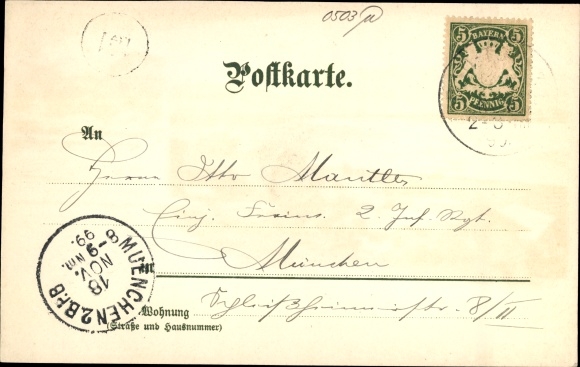 0503
BAYERN
5 5
5 PFENNIG 5
Postkarte.
An
Herrn Otto Mantler
Einj. Freiw. 2. Inf. Rgt.
in
München
Wohnung Schleißheimerstr. 8/II
(Straße und Hausnummer)
MUENCHEN 2 B.A.B.
18
NOV.
Nm.
8-9
99.